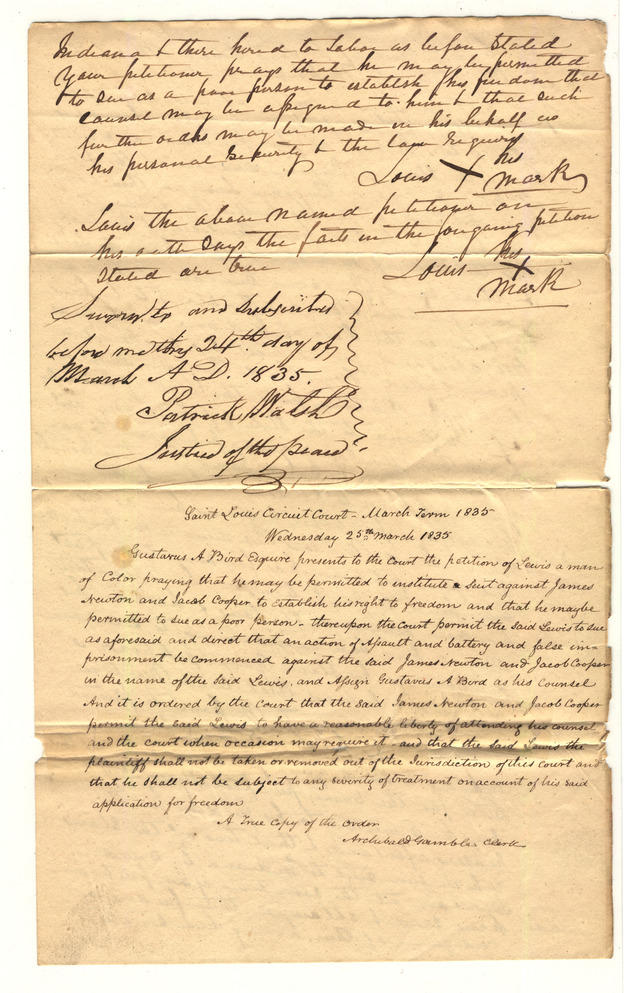 Indiana & there hired to labor as before stated
Your petitioner prays that he may be permitted
to sue as a poor person to establish his freedom that
counsel may be assigned to him & that such
further orders may be made in his behalf as
his personal security & the law requires
Louis X his mark
Louis the above named petitioner on
his oath says the facts in the foregoing petition
stated are true
Louis X his mark
Sworn to and subscribed
before me this 24th day of
March A.D. 1835.
Patrick Walsh
Justice of the peace
Saint Louis Circuit Court - March Term 1835
Wednesday 25th March 1835
Gustavus A Bird Esquire presents to the court the petition of Lewis a man
of Color praying that he may be permitted to institute a suit against James
Newton and Jacob Cooper to establish his right to freedom and that he may be
permitted to sue as a poor person - thereupon the court permit the said Lewis to sue
as aforesaid and direct that an action of Assault and battery and false im=
prisonment be commenced against the said James Newton and Jacob Cooper
in the name of the said Lewis, and Assign Gustavus A Bird as his Counsel
And it is ordered by the Court that the said James Newton and Jacob Cooper
permit the said Lewis to have a reasonable liberty of attending his counsel
and the court when occasion may require it - and that the said Lewis the
plaintiff shall not be taken or removed out of the Jurisdiction of this court and
that he shall not be subject to any severity of treatment on account of his said
application for freedom
A True Copy of the order
Archibald Gamble Clerk